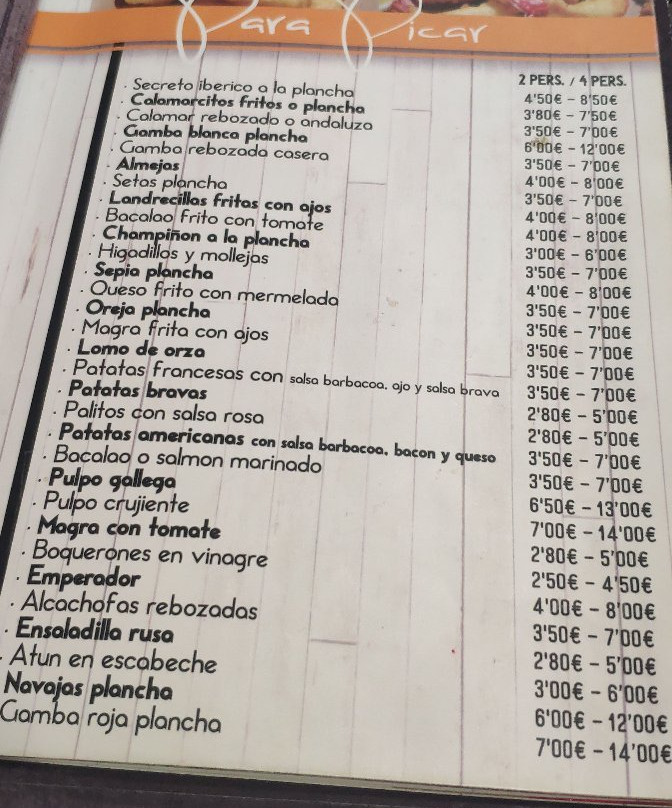 Para Picar
2 PERS. / 4 PERS.
· Secreto iberico a la plancha 4'50€ - 8'50€
· Calamarcitos fritos o plancha 3'80€ - 7'50€
· Calamar rebozado o andaluza 3'50€ - 7'00€
· Gamba blanca plancha 6'00€ - 12'00€
· Gamba rebozada casera 3'50€ - 7'00€
· Almejas 4'00€ - 8'00€
· Setas plancha 3'50€ - 7'00€
· Landrecillas fritas con ajos 4'00€ - 8'00€
· Bacalao frito con tomate 4'00€ - 8'00€
· Champiñon a la plancha 3'00€ - 6'00€
· Higadillos y mollejas 3'50€ - 7'00€
· Sepia plancha 4'00€ - 8'00€
· Queso frito con mermelada 3'50€ - 7'00€
· Oreja plancha 3'50€ - 7'00€
· Magra frita con ajos 3'50€ - 7'00€
· Lomo de orza 3'50€ - 7'00€
· Patatas francesas con salsa barbacoa, ajo y salsa brava 3'50€ - 7'00€
· Patatas bravas 2'80€ - 5'00€
· Palitos con salsa rosa 2'80€ - 5'00€
· Patatas americanas con salsa barbacoa, bacon y queso 3'50€ - 7'00€
· Bacalao o salmon marinado 3'50€ - 7'00€
· Pulpo gallega 6'50€ - 13'00€
· Pulpo crujiente 7'00€ - 14'00€
· Magra con tomate 2'80€ - 5'00€
· Boquerones en vinagre 2'50€ - 4'50€
· Emperador 4'00€ - 8'00€
· Alcachofas rebozadas 3'50€ - 7'00€
· Ensaladilla rusa 2'80€ - 5'00€
· Atun en escabeche 3'00€ - 6'00€
Navajas plancha 6'00€ - 12'00€
Gamba roja plancha 7'00€ - 14'00€